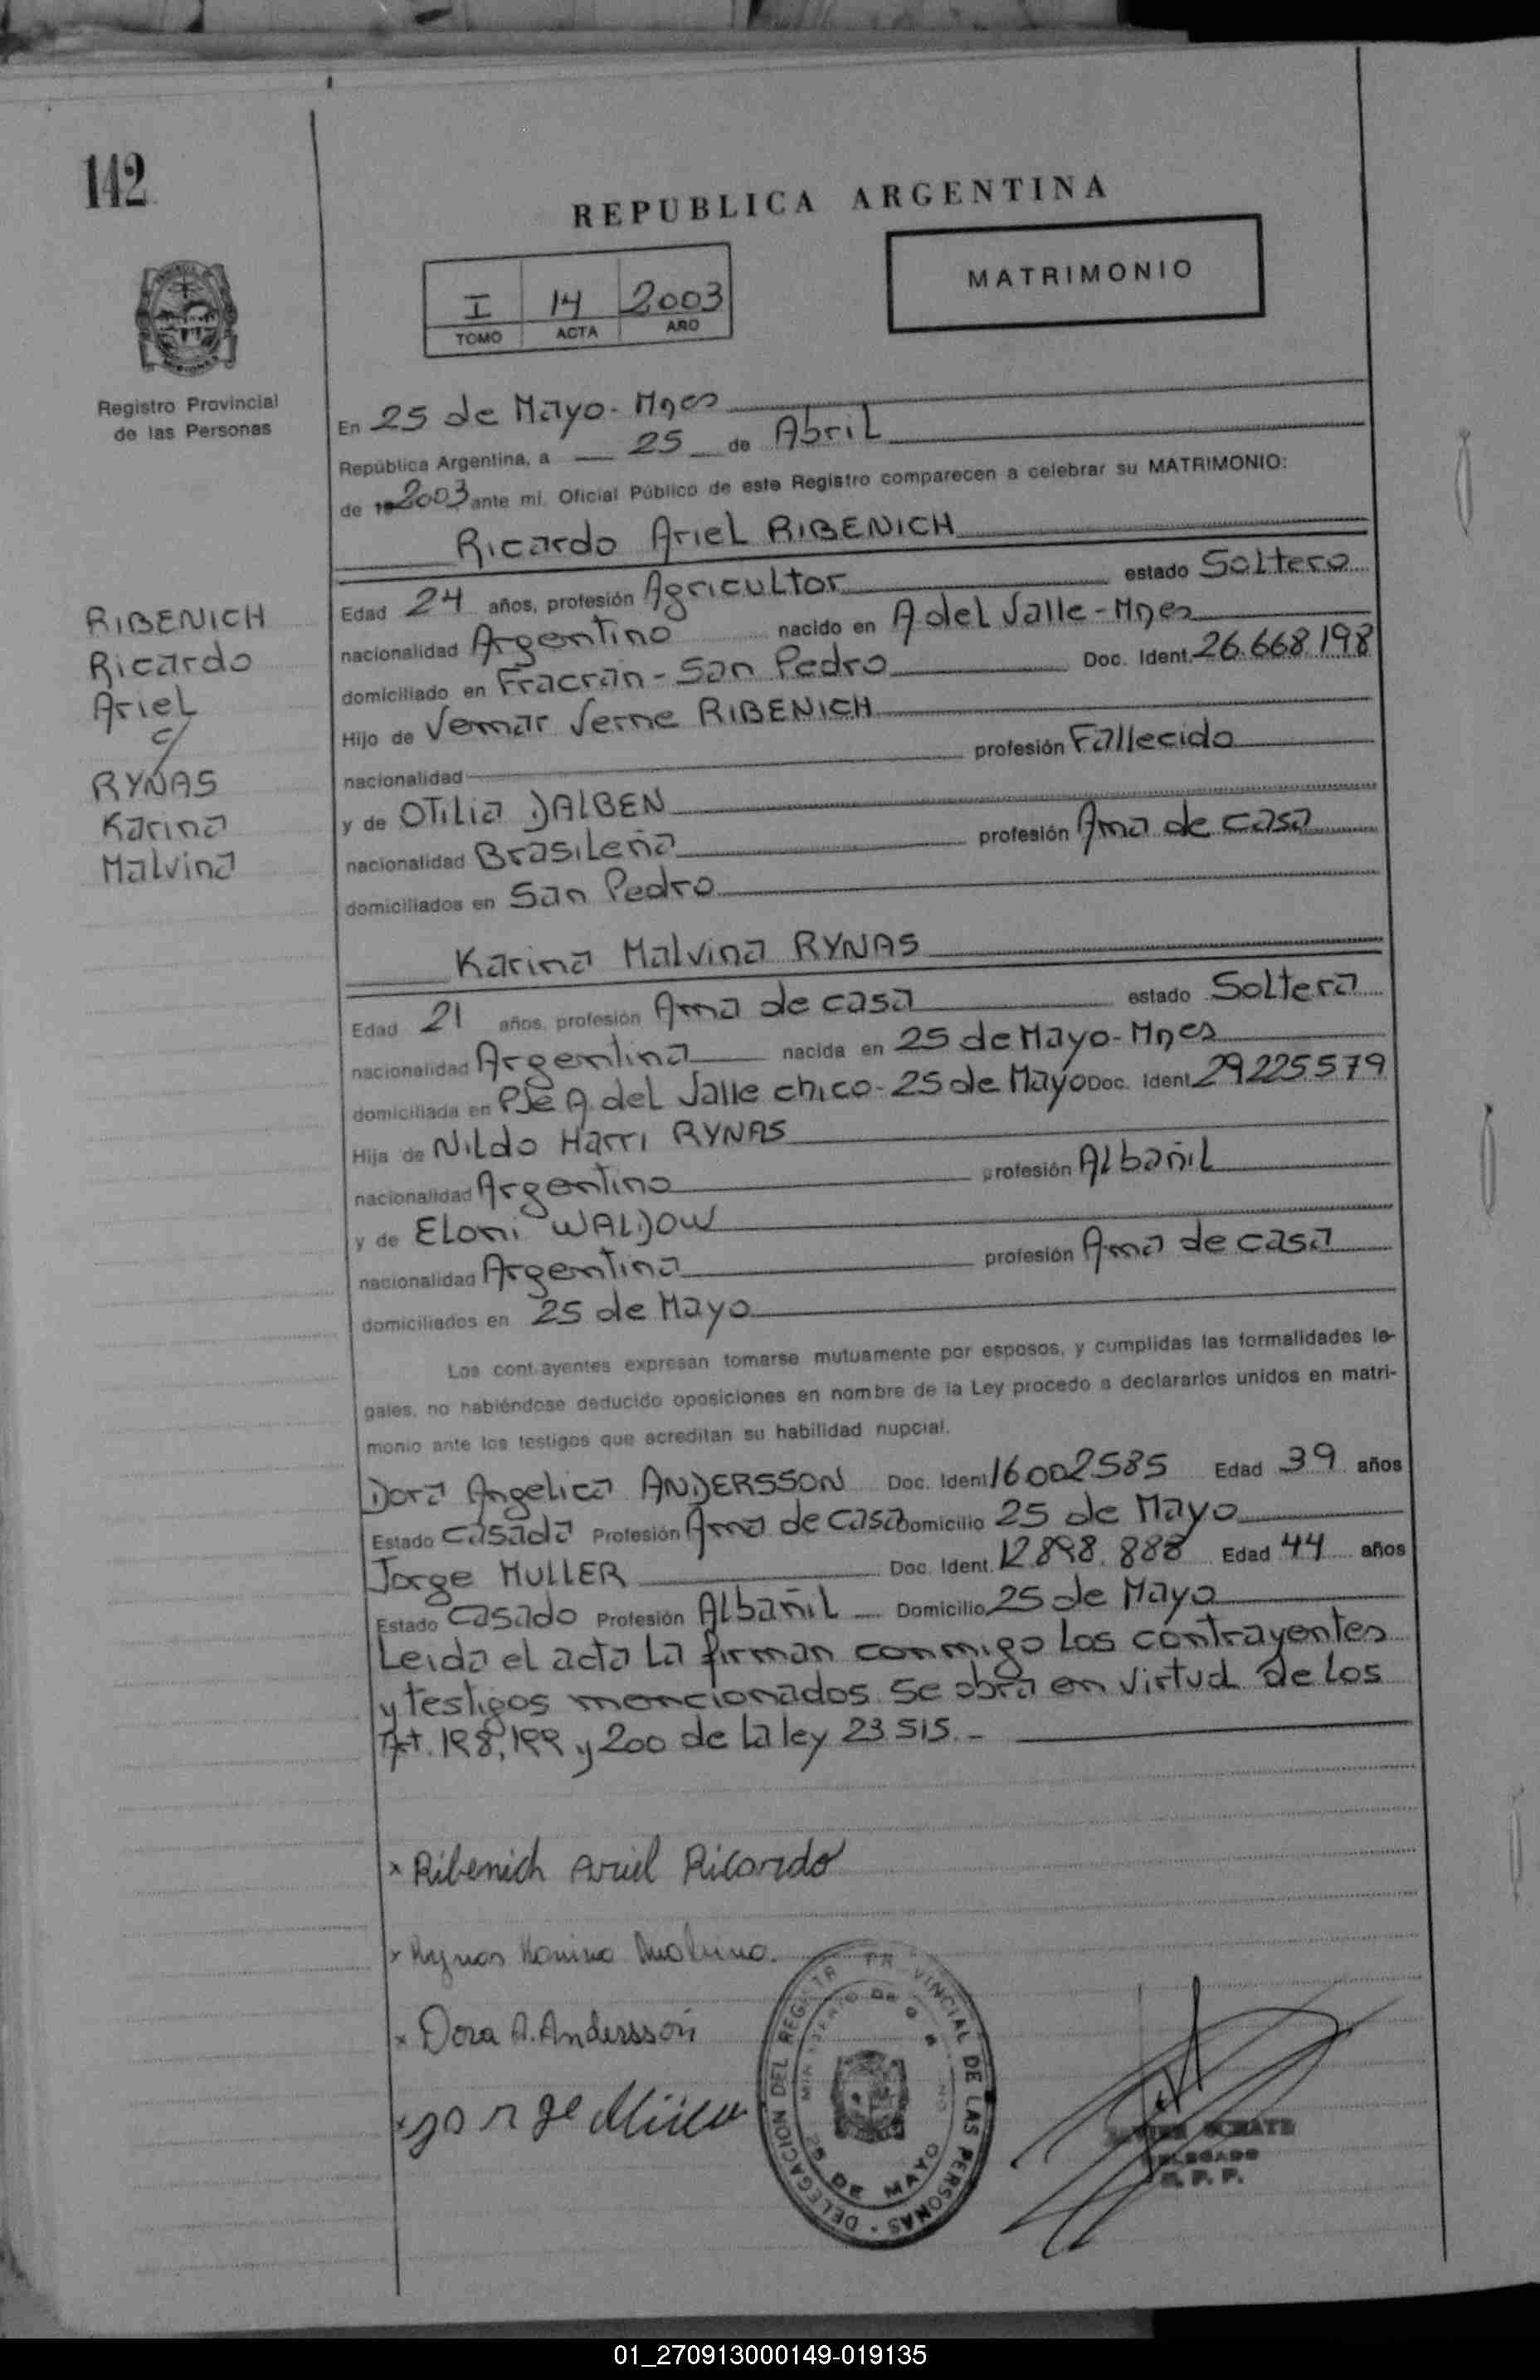 142
REPUBLICA ARGENTINA
I 14 2003
TOMO ACTA AÑO
MATRIMONIO
Registro Provincial
de las Personas
En 25 de Mayo - Mnes
República Argentina, a 25 de Abril
de 19 2003 ante mí, Oficial Público de este Registro comparecen a celebrar su MATRIMONIO:
Ricardo Ariel RIBENICH
Edad 24 años, profesión Agricultor estado Soltero
nacionalidad Argentino nacido en A. del Valle - Mnes
domiciliado en Fracrán - San Pedro Doc. Ident. 26.668.198
Hijo de Vemar Verne RIBENICH
nacionalidad profesión Fallecido
y de Otilia DALBEN
nacionalidad Brasileña profesión Ama de casa
domiciliados en San Pedro
RIBENICH
Ricardo
Ariel
c/
RYNAS
Karina
Malvina
Karina Malvina RYNAS
Edad 21 años, profesión Ama de casa estado Soltera
nacionalidad Argentina nacida en 25 de Mayo - Mnes
domiciliada en Pje A. del Valle chico - 25 de Mayo Doc. Ident. 29.225.579
Hija de Nildo Harri RYNAS
nacionalidad Argentino profesión Albañil
y de Eloni WALDOW
nacionalidad Argentina profesión Ama de casa
domiciliados en 25 de Mayo
Los contrayentes expresan tomarse mutuamente por esposos, y cumplidas las formalidades le-
gales, no habiéndose deducido oposiciones en nombre de la Ley procedo a declararlos unidos en matri-
monio ante los testigos que acreditan su habilidad nupcial.
Dora Angelica ANDERSSON Doc. Ident. 16002585 Edad 39 años
Estado Casada Profesión Ama de casa Domicilio 25 de Mayo
Jorge MULLER Doc. Ident. 12.898.888 Edad 44 años
Estado Casado Profesión Albañil Domicilio 25 de Mayo
Leida el acta la firman conmigo los contrayentes
y testigos mencionados se obra en virtud de los
Art. 188, 199 y 200 de la ley 23.515.-
x Ribenich Ariel Ricardo
x Rynas Karina Malvina.
x Dora A. Andersson
x Jorge Müller
DELEGACION DEL REGISTRO PROVINCIAL DE LAS PERSONAS
MINISTERIO DE GOBIERNO
25 DE MAYO
DELEGADO
R. P. P.
01_270913000149-019135